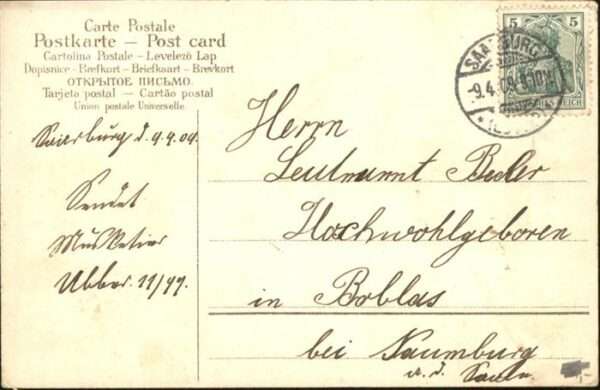 Carte Postale
Postkarte – Post card
Cartolina Postale – Levelező Lap
Dopisnice – Brefkort – Briefkaart – Brevkort
ОТКРЫТОЕ ПИСЬМО.
Tarjeta postal – Cartão postal
Union postale Universelle.
5 5
SAARBURG
9.4.09
REICH
Saarburg d. 9.4.09.
Sendet
Musketier
Herrn
Leutnant
Hochwohlgeboren
in Boblas
bei Naumburg
a. d. Saale.